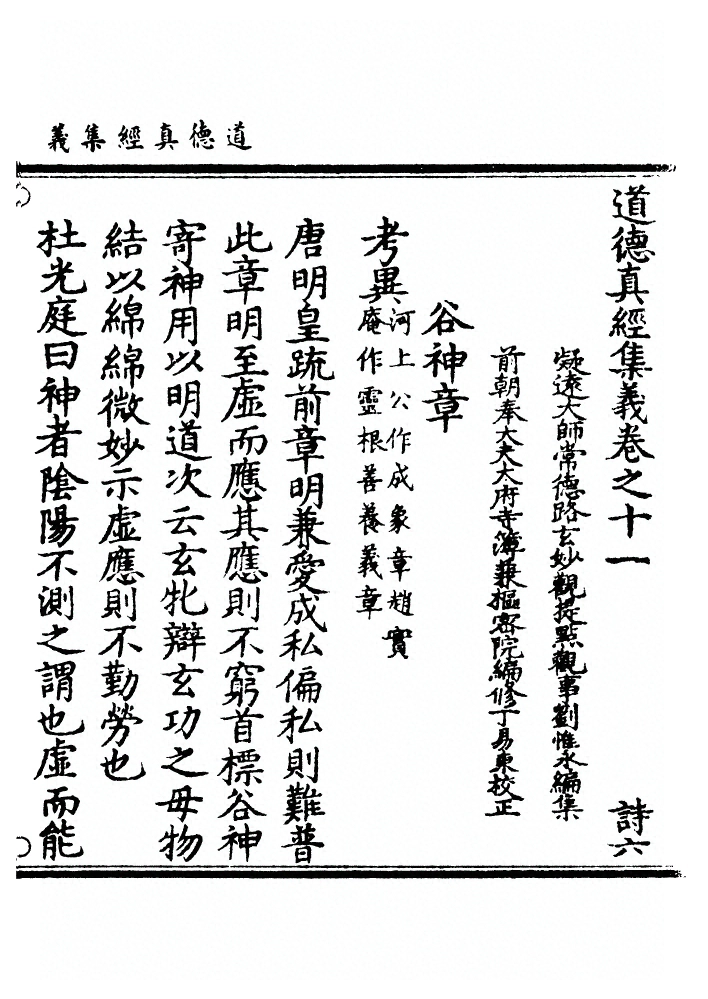 道德真經集義
道德真經集義卷之十一 詩六
凝遠大師常德路玄妙觀提點觀事劉惟永編集
前朝奉大夫大府寺簿兼樞密院編修丁易東校正
谷神章
考異河上公作成象章趙實
庵作靈根善養義章
唐明皇䟽前章明兼愛成私偏私則難普
此章明至虛而應其應則不窮首標谷神
寄神用以明道次云玄牝辯玄功之母物
結以綿綿微妙示虛應則不勤勞也
杜光庭曰神者陰陽不測之謂也虛而能